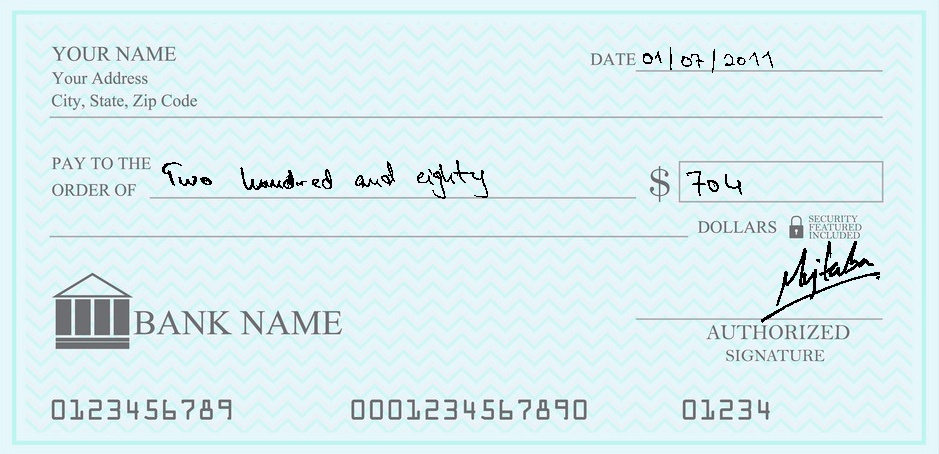 YOUR NAME
Your Address
City, State, Zip Code
DATE 01/07/2011
PAY TO THE
ORDER OF Two hundred and eighty $ 704
DOLLARS
SECURITY
FEATURED
INCLUDED
Mujtaba
BANK NAME
AUTHORIZED
SIGNATURE
0123456789 0001234567890 01234